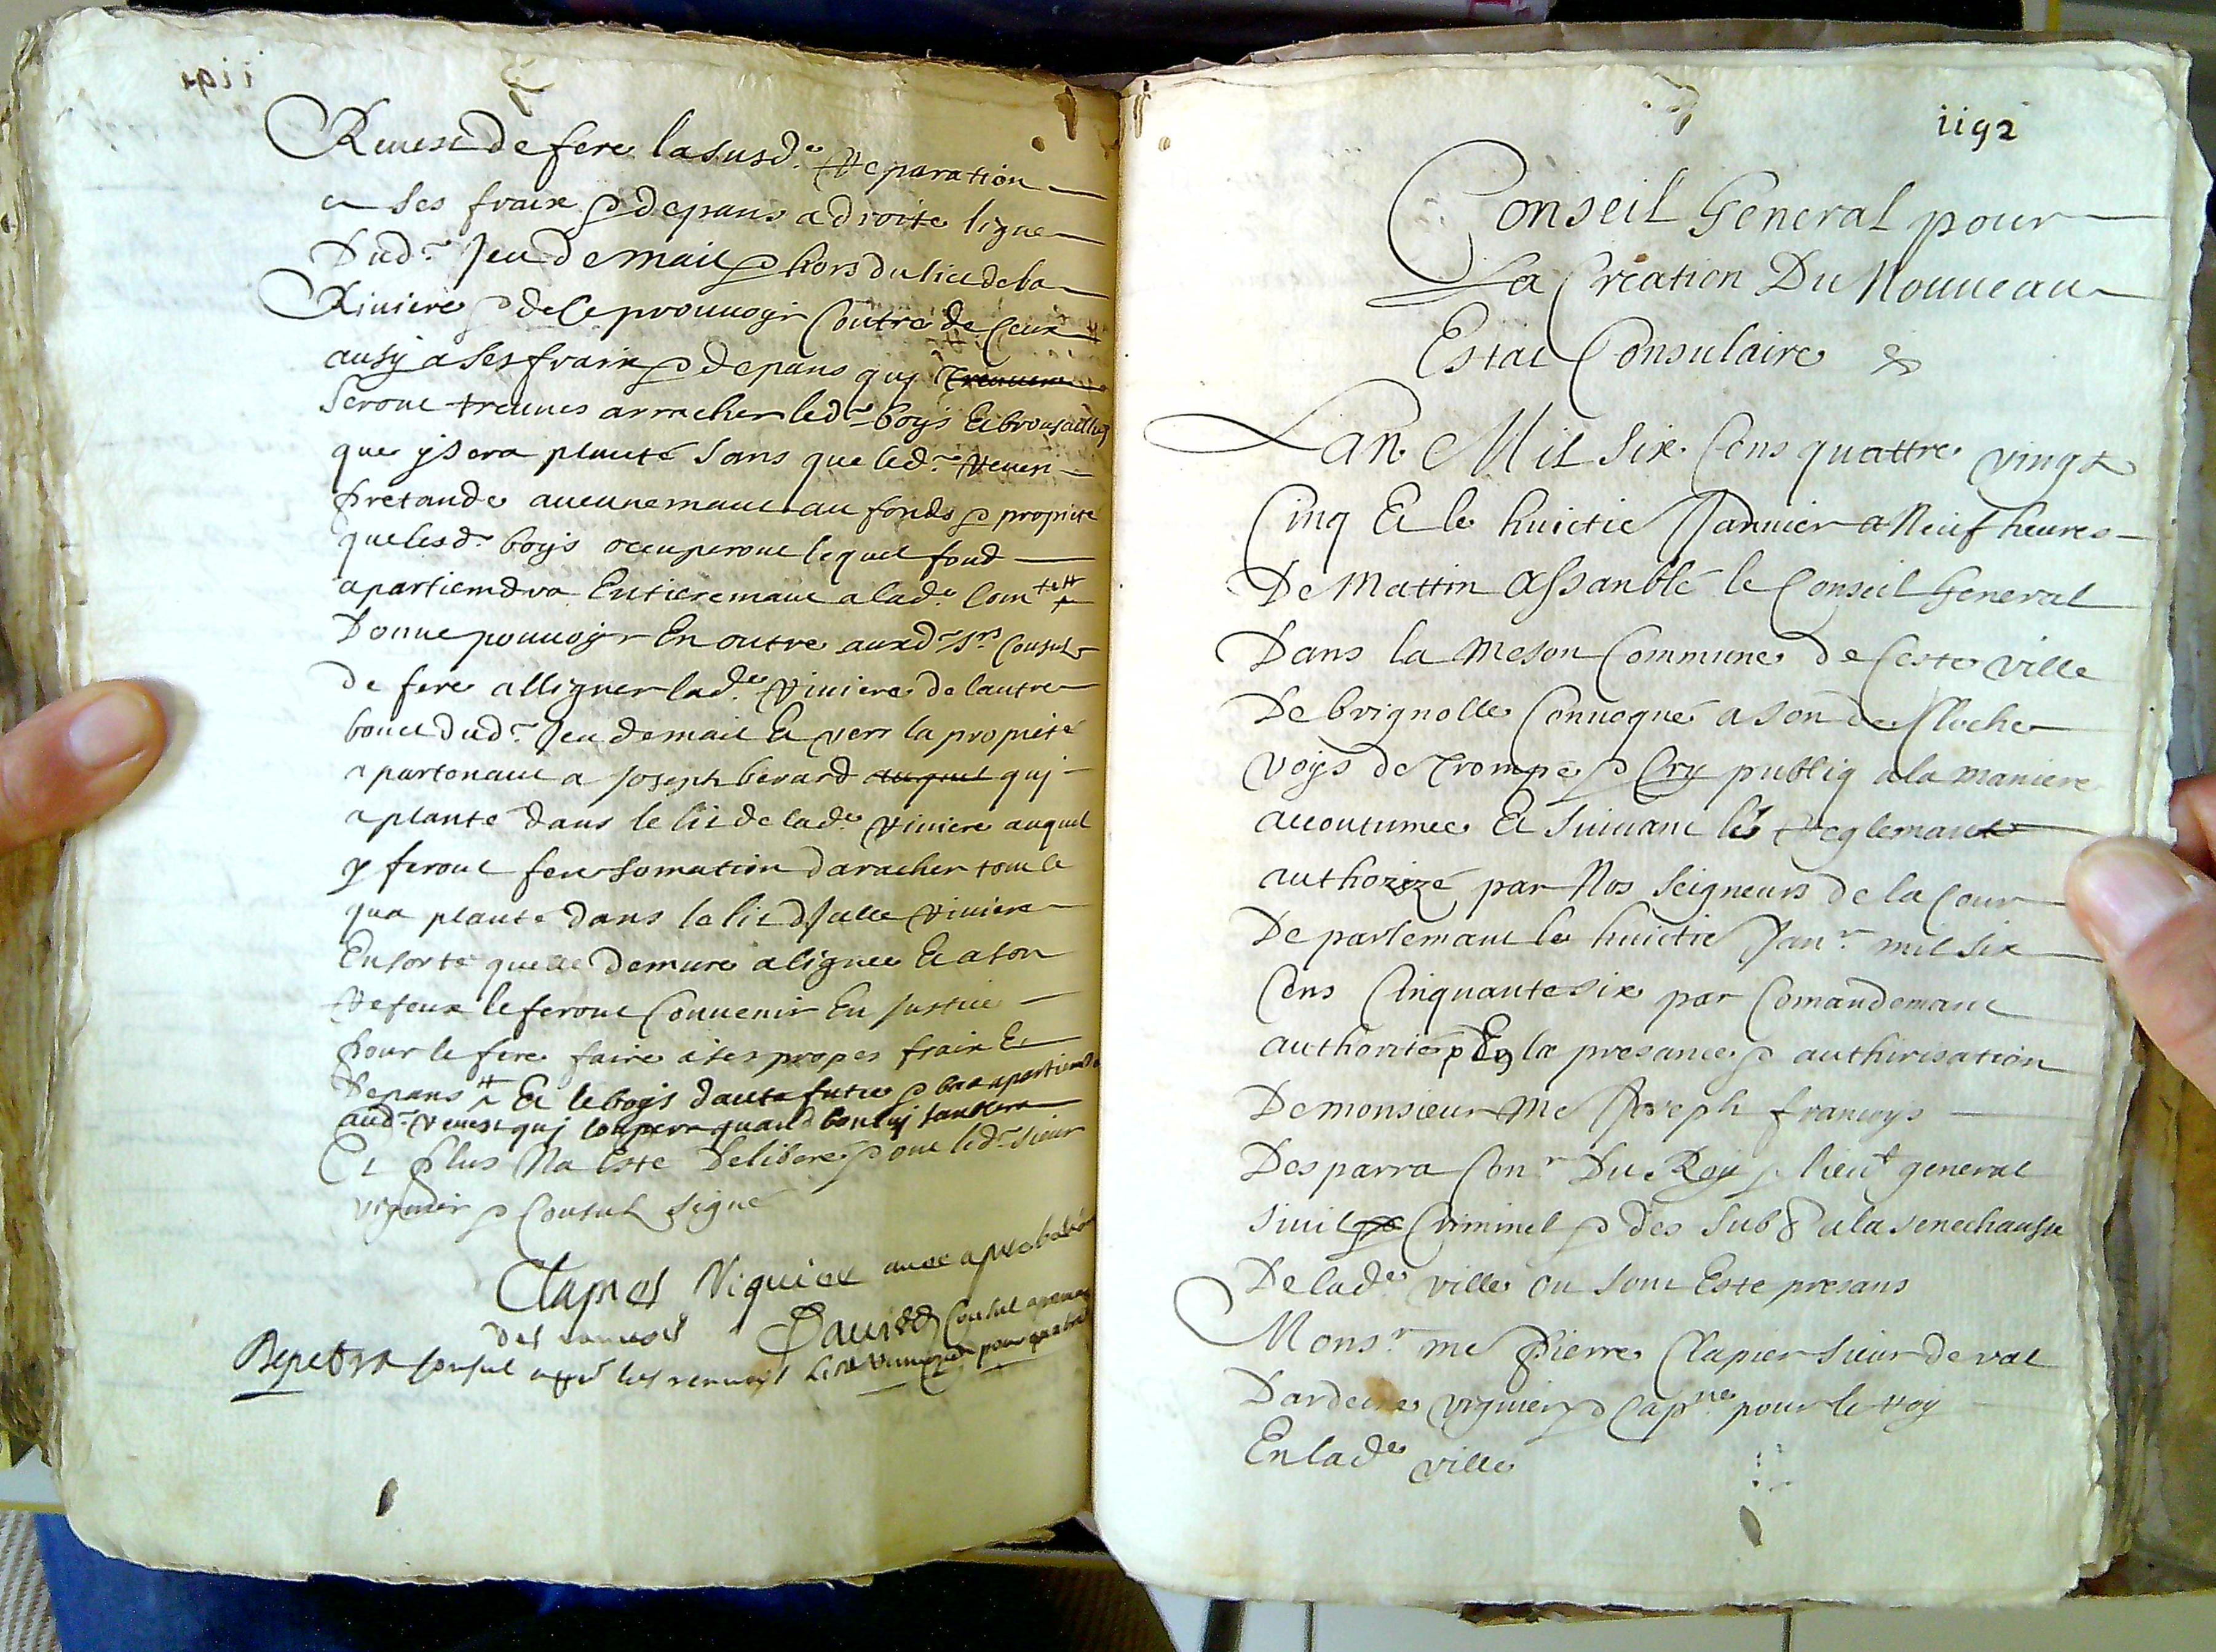 Revest de fere la susd.e reparation
a ses fraix & depans a droite ligne
Dud.t Jeu de mail & hors du lict de la
Riviere & de se prouuoyr Contre de Ceux
ausy a ses fraix & depans quj
Seront treuues arracher led.t boys Et brousailles
que y sera planté sans que led.t Reuest
pretande aucunemant au fonds & propriete
que lesd.s boys occuperont lequel fond
apartiendra Entieremant a lad.e Com.te
Donne pouuoyr En outre auxd.s s.rs Consuls
de fere alligner lad.e Riuiere de lautre
bout dud.t Jeu de mail Et vers la propieté
apartenant a Joseph berard auquel quj
a planté dans le lit de lad.e riuiere auquel
y feront fere somation daracher tout le
qua planté dans le lit dJcelle riuiere
En sorte quelle demure alignee Et a son
Refeux le feront Conuenir En Justice
pour le fere faire a ses propes fraix Et
Depans Et le boys daute futee & bas apartiendra
aud.t Reuest quj coupera quand bon luj semblera
Et plus Na Este Deliberé & ont led.t sieur
viguier & Consuls signé
Clapies Viguier auec aprobation
des renuois David Consul
consul les renuoys
ii92
Conseil General pour
La Creation Du Nouueau
Estat Consulaire &
Lan Mil Six Cens quattre vingt
Cinq Et le huictie Januier a Neuf heures
De Mattin assanblé le Conseil General
Dans la Meson Commune de Ceste ville
De brignolle Conuoqué a son de Cloche
voys de Trompe & Cry publiq a la maniere
accoutumee Et suiuant les reglemant
authorizé par Nos seigneurs de la Cour
De parlemant le huictie Jan.r mil six
Cens Cinquante six par Comandemant
authorité & En la presance & authirisation
De monsieur Me Joseph francoys
Desparra Con.r Du Roy & lieut general
siuil & Criminel & des sub.s a la senechausee
De lad.e ville ou sont Este presans
Mons.r me Pierre Clapier sieur de val
Dardene viguier & Cap.ne pour le roy
En lad.e ville